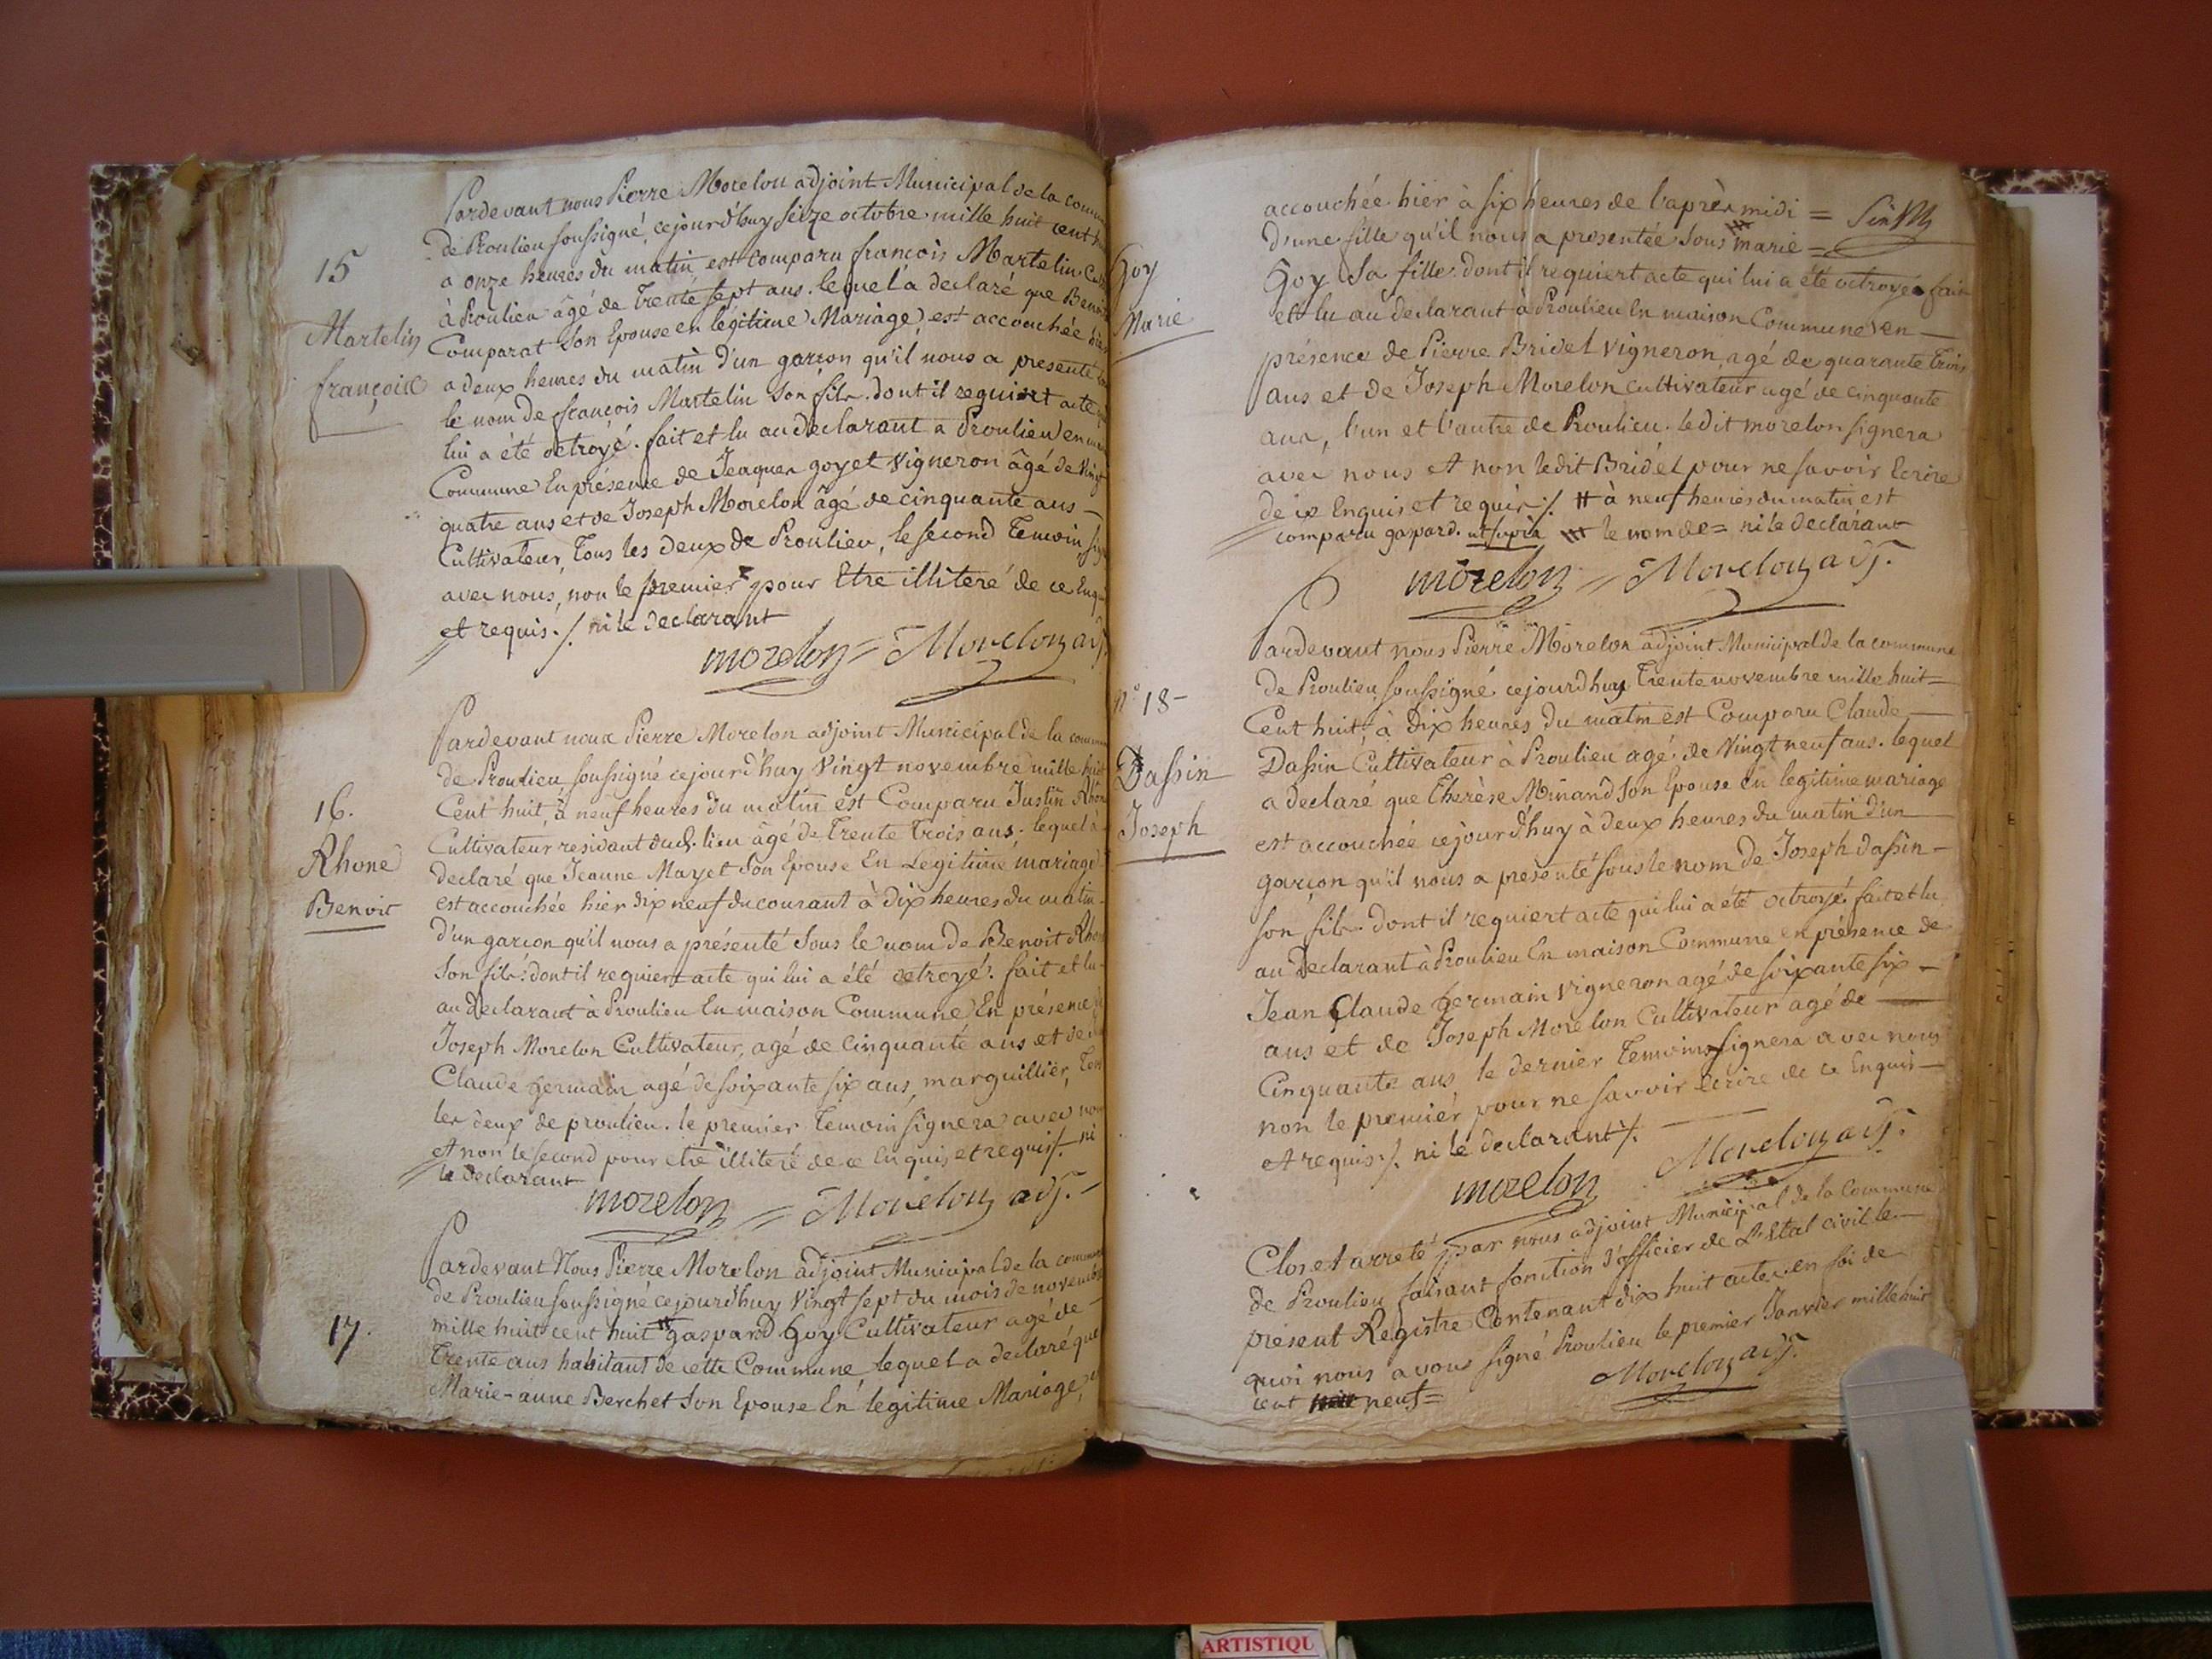 15
Martelin
françois
Pardevant nous Pierre Morelon adjoint Municipal de la comm
de Proulieu soussigné, cejourd'huy seize octobre mille huit cent
a onze heures du matin, est comparu françois Martelin
à Proulieu âgé de trente sept ans. lequel a declaré que Benoi
Comparat son Epouse en légitime Mariage, est accouchée
a deux heures du matin d'un garcon qu'il nous a presenté
le nom de françois Martelin son fils. dont il requiert acte
lui a été octroyé. fait et lu au declarant a Proulieu en
Commune En présence de Jeaques goyet Vigneron âgé de Vingt
quatre ans et de Joseph Morelon âgé de cinquante ans —
Cultivateur, Tous les deux de Proulieu, le second Temoin
avec nous, non le premier pour Etre illiteré de ce Enq
et requis ./. ni le declarant
morelon = Morelon adj.
16.
Rhone
Benoit
Pardevant nous Pierre Morelon adjoint Municipal de la comm
de Proulieu, soussigné cejourd'huy Vingt novembre mille huit
Cent huit, à neuf heures du matin est Comparu Justin Rhone
Cultivateur residant aud. lieu âgé de Trente Trois ans. lequel a
declaré que Jeanne Mayet son Epouse En Legitime mariage
est accouchée hier dix neuf du courant à dix heures du matin
d'un garcon qu'il nous a présenté sous le nom de Benoit Rhone
son fils. dont il requiert acte qui lui a été octroyé. fait et lu
au declarant à Proulieu En maison Commune En présence
Joseph Morelon Cultivateur, agé de Cinquante ans et de
Claude germain agé de soixante six ans, marguillier,
les deux de proulieu. le premier Temoin signera avec nous
et non le second pour etre illiteré de ce Enquis et requis ./. ni
le declarant
morelon = Morelon adj. -
17.
Pardevant Nous Pierre Morelon adjoint Municipal de la commune
de Proulieu soussigné cejourd'huy Vingt sept du mois de novembre
mille huit cent huit # gaspard Goy Cultivateur agé de —
Trente ans habitant de cette Commune, lequel a declaré que
Marie-anne Berchet son Epouse En légitime Mariage,
Goy
Marie
accouchée hier à six heures de l'après midi =
d'une fille qu'il nous a presentée sous marie =
Goy sa fille. dont il requiert acte qui lui a été octroyé. fait
et lu au declarant à Proulieu En maison Commune en —
présence de Pierre Bridel Vigneron, agé de quarante trois
ans et de Joseph Morelon cultivateur agé de cinquante
ans, l'un et l'autre de Proulieu. ledit morelon signera
avec nous et non ledit Bridel pour ne savoir Ecrire
de ce Enquis et requis ./. # à neuf heures du matin est
comparu gaspard. ut supra # le nom de = ni le declarant
morelon = Morelon adj.
n° 18 -
Dassin
Joseph
Pardevant nous Pierre Morelon adjoint Municipal de la commune
de Proulieu, soussigné cejourd'huy Trente novembre mille huit =
Cent huit, à Dix heures du matin est Comparu Claude —
Dassin Cultivateur à Proulieu agé de Vingt neuf ans. lequel
a declaré que Therèse Minand son Epouse en legitime mariage
est accouchée cejourd'huy à deux heures du matin d'un
garcon qu'il nous a presenté sous le nom de Joseph dassin -
son fils. dont il requiert acte qui lui a été octroyé. fait et lu
au declarant à Proulieu En maison Commune en présence de
Jean Claude Germain Vigneron agé de soixante six -
ans et de Joseph Morelon Cultivateur agé de —
Cinquante ans le dernier Temoin signera avec nous
non le premier pour ne savoir écrire de ce Enquis —
et requis ./. ni le declarant ./.
morelon Morelon adj.
Clos et arreté par nous adjoint Municipal de la Commune
de Proulieu faisant fonction d'officier de L'Etat civil le —
présent Registre Contenant dix huit actes. en foi de
quoi nous avons signé Proulieu le premier Janvier mille huit
cent neuf =
Morelon adj.
ARTISTIQU